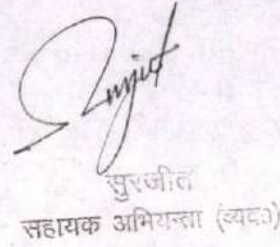 Surjit
सुरजीत
सहायक अभियन्ता (व्यव0)